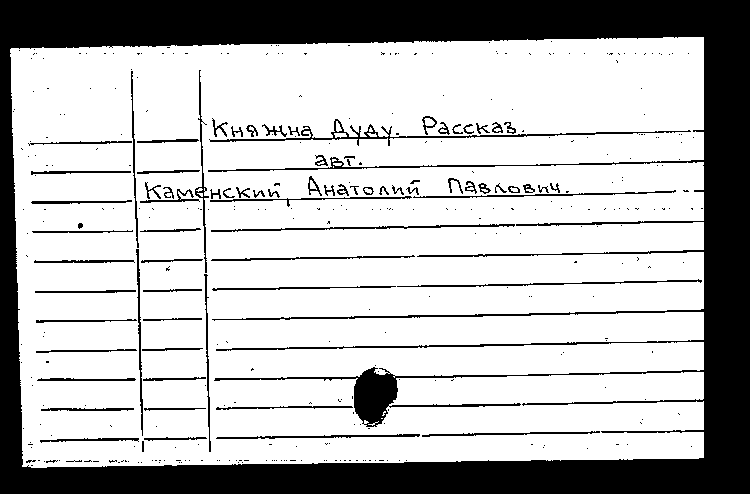 Княжна Дуду. Рассказ.
авт.
Каменский, Анатолий Павлович.